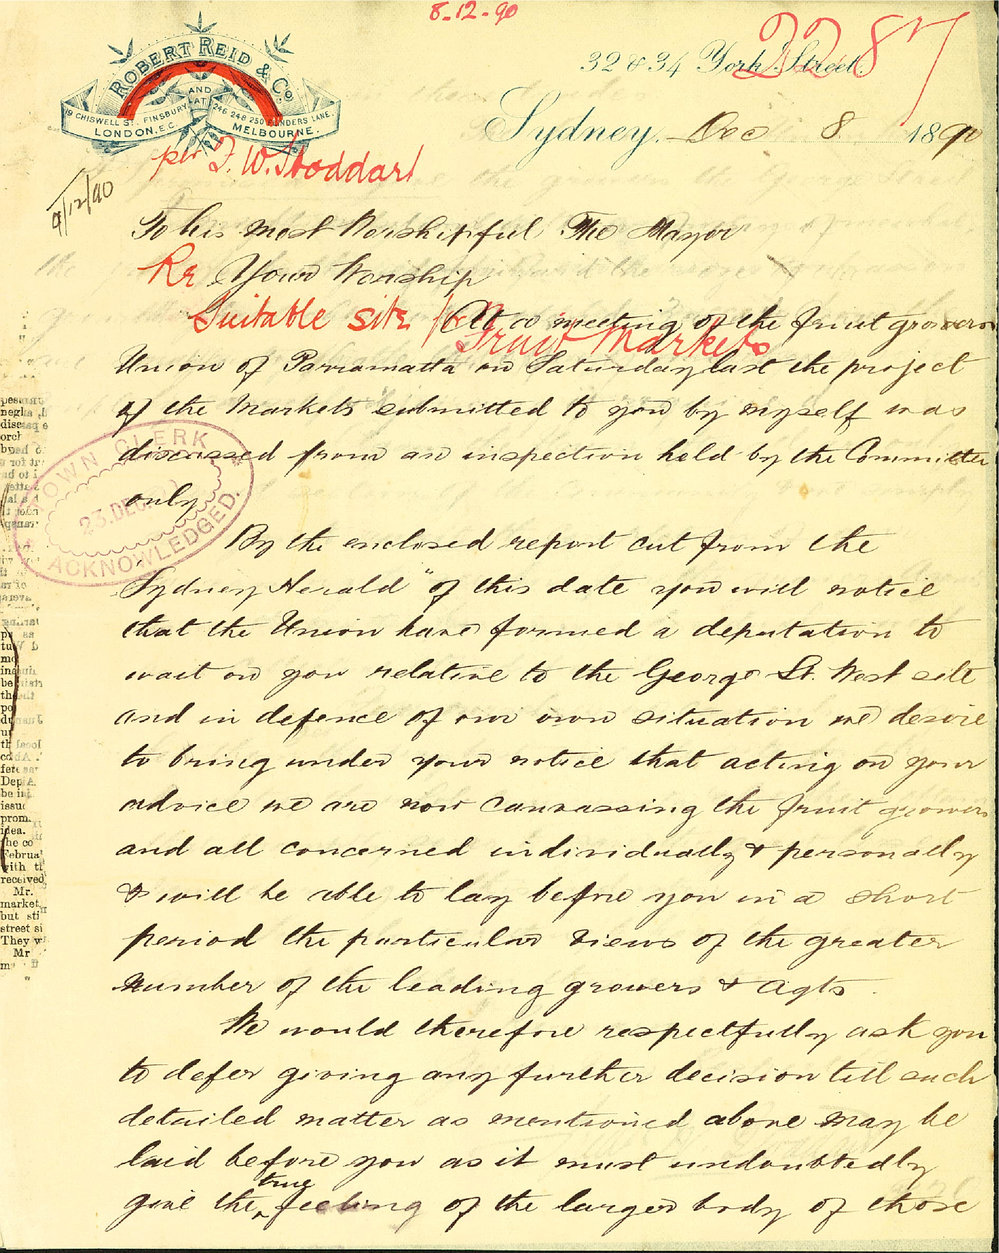 8-12-90
2287
ROBERT REID & Co.
AND AT
9 CHISWELL ST. FINSBURY
LONDON, E.C.
246 248 250 FLINDERS LANE.
MELBOURNE.
32 & 34 York Street.
Sydney, Dec 8 1890
per F. W. Stoddart
9/12/90
To his most Worshipful The Mayor
Re Your Worship
Suitable site for Fruit Markets
At a meeting of the fruit growers
Union of Parramatta on Saturday last the project
of the Markets submitted to you by myself was
discussed from an inspection held by the Committee
only
By the enclosed report cut from the
Sydney Herald" of this date you will notice
that the Union have formed a deputation to
wait on you relative to the George St. West site
and in defence of our own situation we desire
to bring under your notice that acting on your
advice we are now canvassing the fruit growers
and all concerned individually & personally
& will be able to lay before you in a short
period the particular views of the greater
number of the leading growers & agts.
We would therefore respectfully ask you
to defer giving any further decision till such
detailed matter as mentioned above may be
laid before you as it must undoubtedly
give the true feeling of the larger body of those
TOWN CLERK
23. DEC.
ACKNOWLEDGED.
be in
issu
prom.
idea.
the co
Februa
with t
received
Mr.
market,
but sti
street si
They w
Mr